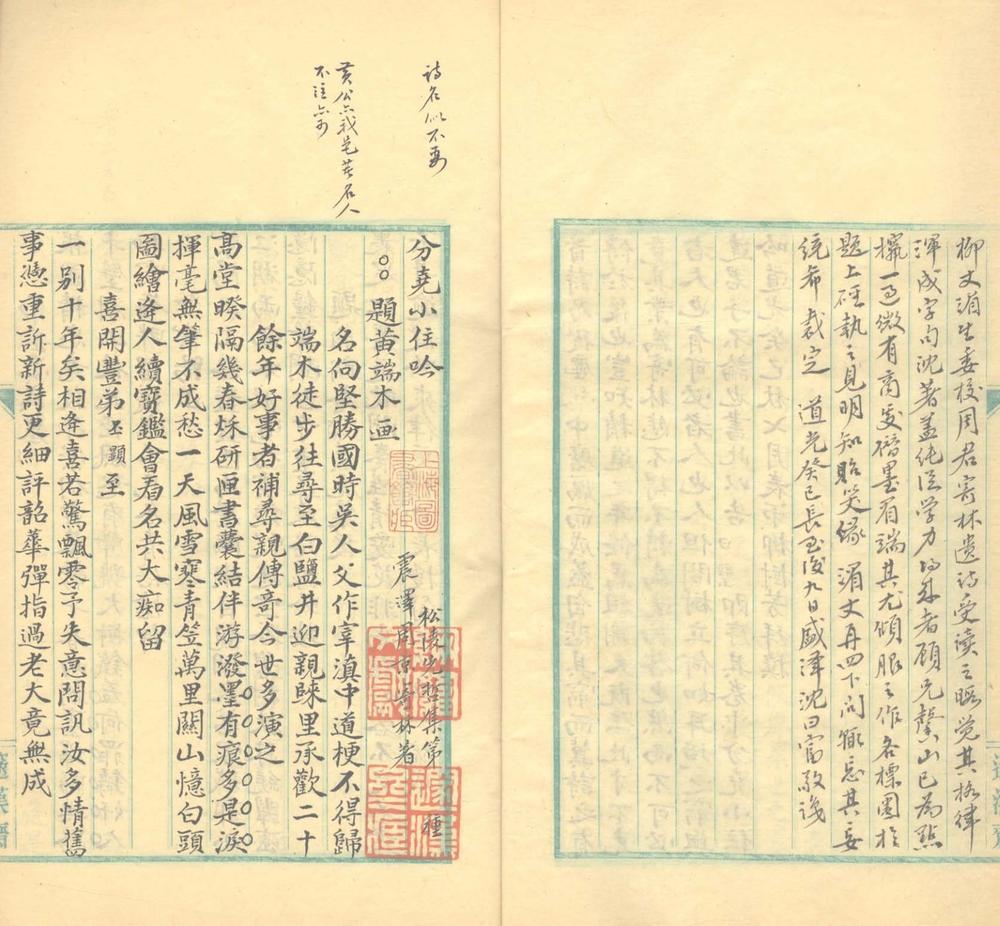 柳丈湄生委校周君寄林遺詩受讀之暇覺其格律
渾成字句沈著蓋純從學力得來者顧兄馨山已為點
攛一過微有商處磨墨眉端其尤傾服之作各標圈於
題上硜執之見明知貽笑緣湄丈再四下問輒忘其妄
統希 裁定 道光癸巳長至後九日盛澤沈曰富敬識
詩名似不要
黃公亦我邑甚名人
不注亦可
分堯小住吟
松陵 集第 種
震澤周 寄林著
題黃端木画
名向堅勝國時吳人父作宰滇中道梗不得歸
端木徒步往尋至白鹽井迎親歸里承歡二十
餘年好事者補尋親傳奇今世多演之
高堂暌隔幾春秌研匣書囊結伴游潑墨有痕多是淚
揮毫無筆不成愁一天風雪寒青笠萬里關山憶白頭
圖繪逢人續寶鑑會看名共大痴留
喜聞豐弟丕顯至
一別十年矣相逢喜若驚飄零予失意問訊汝多情舊
事懑重訴新詩更細評韶華彈指過老大竟無成